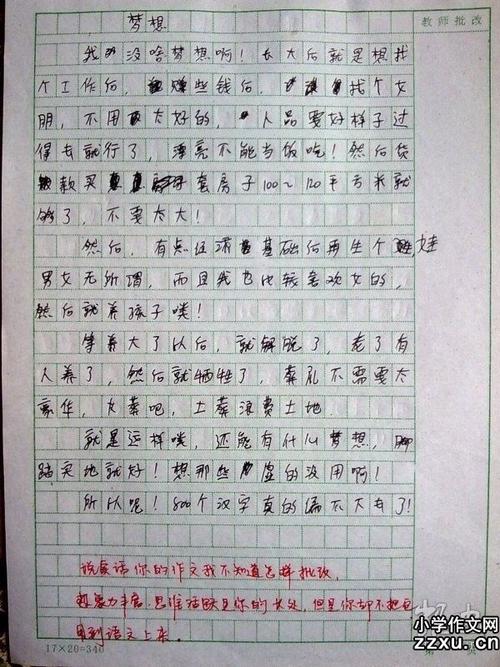 梦想
教师批改
我没啥梦想啊！长大后就是想找
个工作后，赚些钱后，找个女
朋，不用太好的，人品要好样子过
得去就行了，漂亮不能当饭吃！然后贷
款买套房子100～120平方米就
够了，不要太大！
然后，有点经济基础后再生个娃
男女无所谓，而且我也比较喜欢女的，
然后就养孩子喽！
等养大了以后，就解脱了，老了有
人养了，然后就牺牲了，葬礼不需要太
豪华，火葬吧，土葬浪费土地
就是这样喽，还能有什么梦想，脚
踏实地就好！想那些虚的没用啊！
所以呢！800个汉字真的编不下去了！
说实话你的作文我不知道怎样批改，
想象力丰富，思维活跃是你的长处，但是你却不把它
用到语文上来。
17×20=340
小学作文网
zzxu.cn